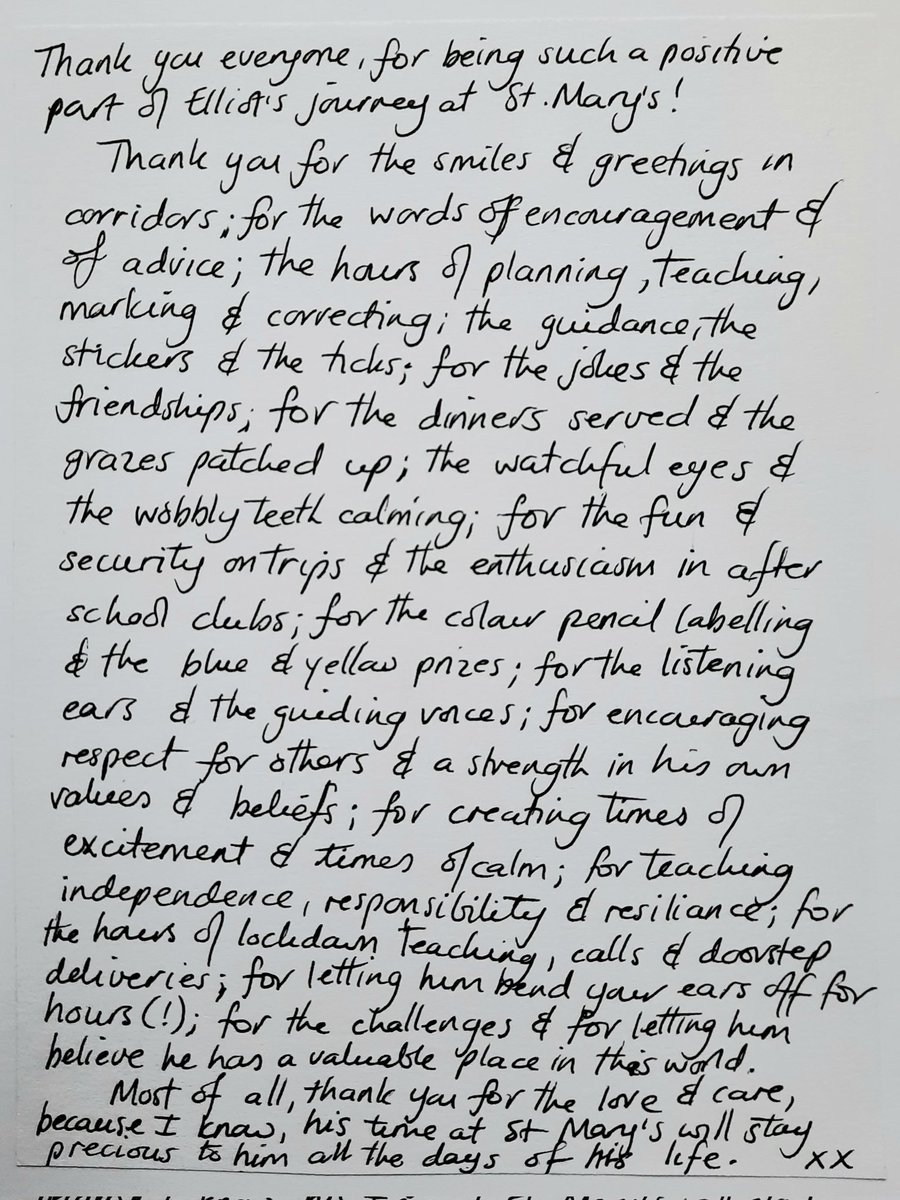 Thank you everyone, for being such a positive
part of Elliot's journey at St. Mary's!
Thank you for the smiles & greetings in
corridors; for the words of encouragement &
of advice; the hours of planning, teaching,
marking & correcting; the guidance, the
stickers & the ticks; for the jokes & the
friendships; for the dinners served & the
grazes patched up; the watchful eyes &
the wobbly teeth calming; for the fun &
security on trips & the enthusiasm in after
school clubs; for the colour pencil labelling
& the blue & yellow prizes; for the listening
ears & the guiding voices; for encouraging
respect for others & a strength in his own
values & beliefs; for creating times of
excitement & times of calm; for teaching
independence, responsibility & resiliance; for
the hours of lockdown teaching, calls & doorstep
deliveries; for letting him bend your ears off for
hours(!); for the challenges & for letting him
believe he has a valuable place in this world.
Most of all, thank you for the love & care,
because I know, his time at St Mary's will stay
precious to him all the days of his life. xx